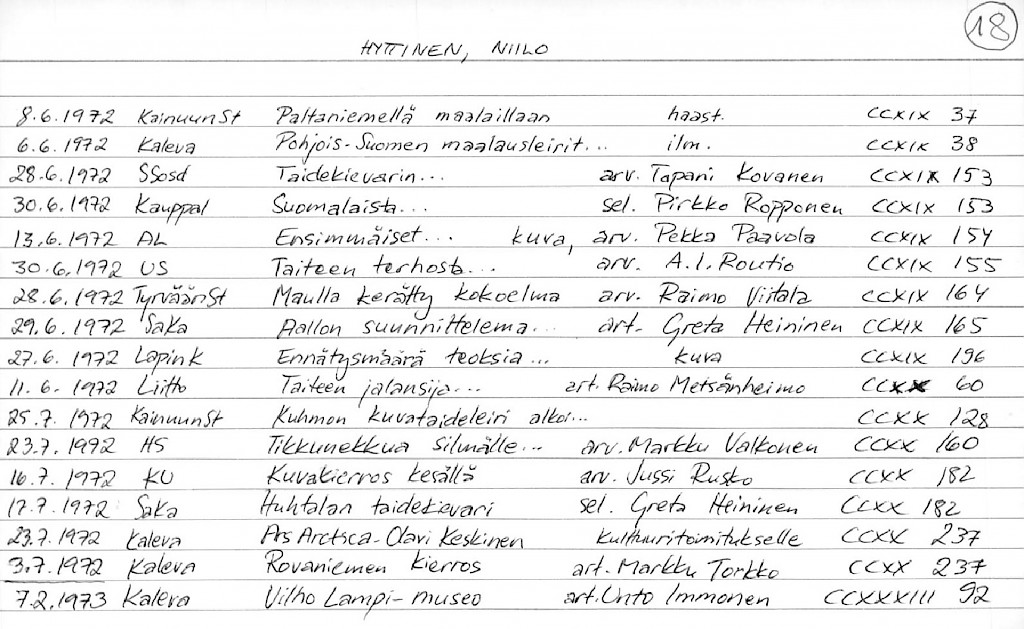 18
HYTTINEN, NIILO
8.6.1972 KainuunSt Paltaniemellä maalaillaan haast. CCXIX 37
6.6.1972 Kaleva Pohjois-Suomen maalausleirit... ilm. CCXIX 38
28.6.1972 SSosd Taidekievarin... arv. Tapani Kovanen CCXIX 153
30.6.1972 Kauppal Suomalaista... sel. Pirkko Ropponen CCXIX 153
13.6.1972 AL Ensimmäiset... kuva, arv. Pekka Paavola CCXIX 154
30.6.1972 US Taiteen terhosta... arv. A.I. Routio CCXIX 155
28.6.1972 TyrväänSt Maulla kerätty kokoelma arv. Raimo Viitala CCXIX 164
29.6.1972 SaKa Aallon suunnittelema... art. Greta Heininen CCXIX 165
27.6.1972 LapinK Ennätysmäärä teoksia... kuva CCXIX 196
11.6.1972 Liitto Taiteen jalansija... art. Raimo Metsänheimo CCXX 60
25.7.1972 KainuunSt Kuhmon kuvataideleiri alkoi... CCXX 128
23.7.1972 HS Tikkunekkua silmälle... arv. Markku Valkonen CCXX 160
16.7.1972 KU Kuvakierros kesällä arv. Jussi Rusko CCXX 182
17.7.1972 SaKa Huhtalan taidekievari sel. Greta Heininen CCXX 182
23.7.1972 Kaleva Ars Arctica-Olavi Keskinen kulttuuritoimitukselle CCXX 237
3.7.1972 Kaleva Rovaniemen kierros art. Markku Torkko CCXX 237
7.2.1973 Kaleva Vilho Lampi-museo art. Unto Immonen CCXXXIII 92